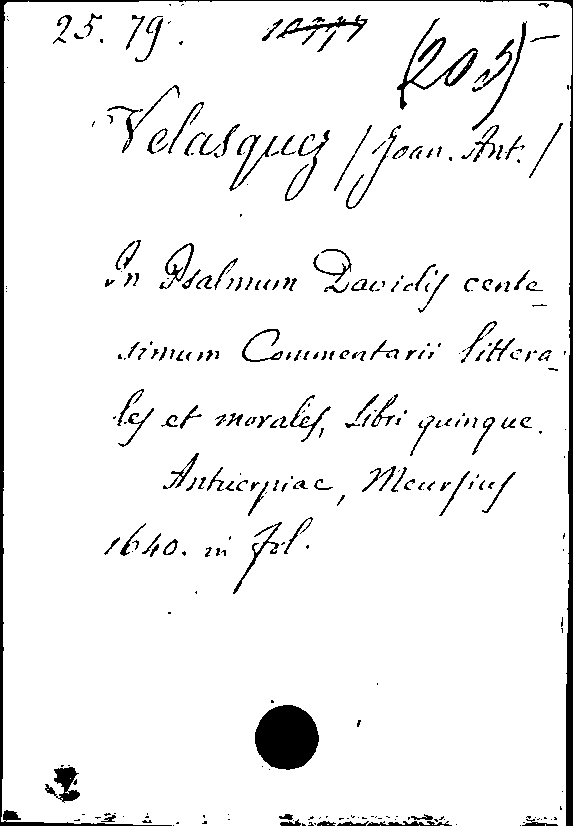 25. 79.
(205)
Velasquez / Joan. Ant. /
In Psalmum Davidis cente-
simum Commentarii littera-
les et morales, Libri quinque.
Antuerpiae, Meursius
1640. in fol.